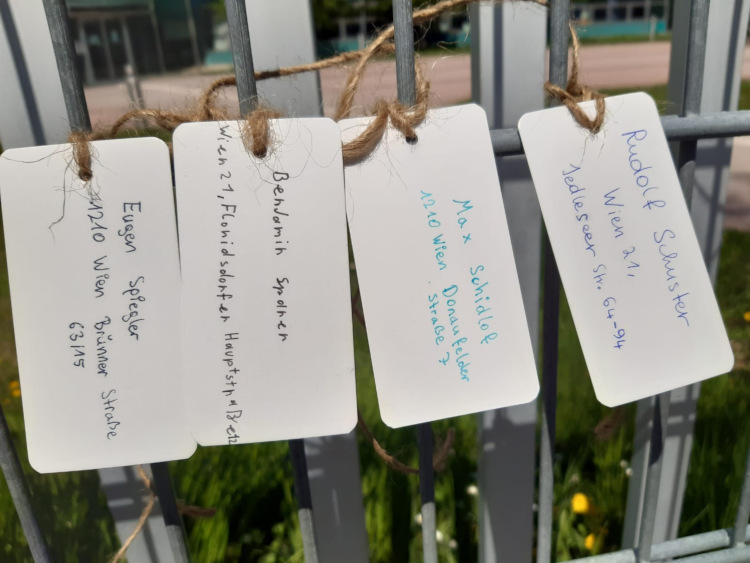 Eugen Spiegler
1210 Wien Brünner Straße
63/15
Benjamin Spanen
Wien 21, Floridsdorfer Hauptstraße
Max Schidlof
1210 Wien Donaufelder
Straße 7
Rudolf Schuster
Wien 21,
Jedleseer Str. 64-94